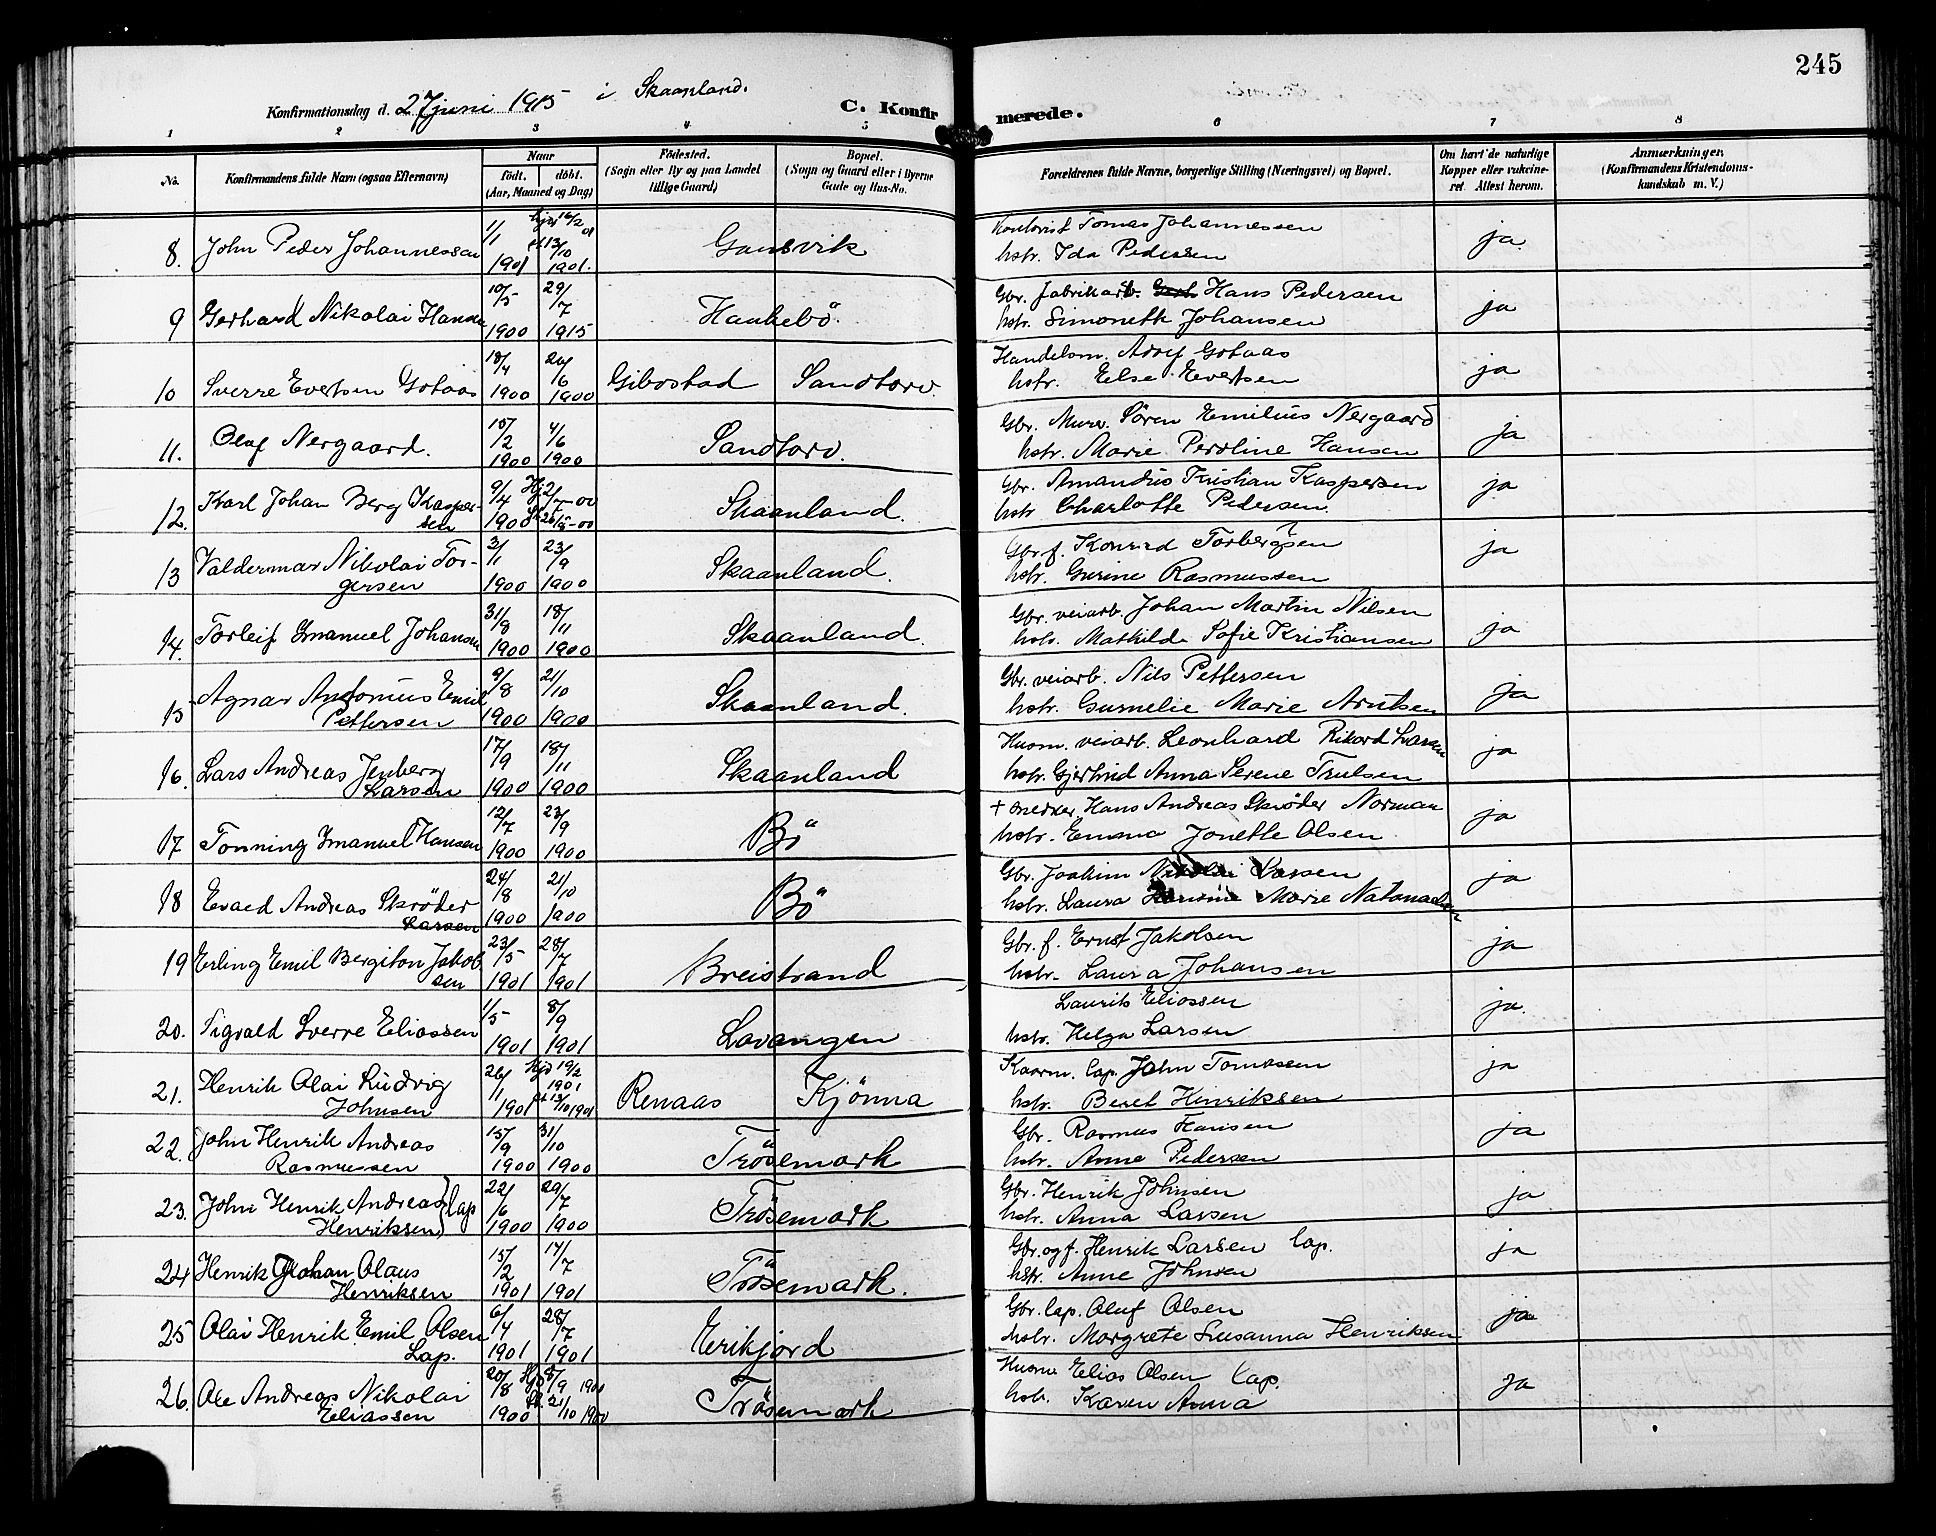 245
Konfirmationsdag d. 27 juni 1915 i Skaanland.
C. Konfirmerede.
1 2 3 4 5 6 7 8
No.
Konfirmandens fulde Navn (ogsaa Efternavn)
Naar
født. døbt.
(Aar, Maaned og Dag)
Födested.
(Sogn eller By og paa Landet tillige Gaard)
Bopæl.
(Sogn og Gaard eller i Byerne Gade og Hus-No.
Forældrenes fulde Navne, borgerlige Stilling (Næringsvei) og Bopæl.
Om havt de naturlige Kopper eller vakcineret. Attest herom.
Anmærkninger
(Konfirmandens Kristendomskundskab m. V.)
8. John Peder Johannessen 1/1 1901 hjd 16/2 01 st 13/10 1901. Gansvik
Tomas Johannessen
hstr. Ida Pedersen ja
9 Gerhard Nikolai Hansen 10/5 1900 29/7 1915 Haukebö.
Gbr. fabrikarb. Hans Pedersen
hstr. Simonette Johansen ja
10 Sverre Evertsen Gotaas 18/4 1900 26/6 1900 Gibostad Sandtorv.
Handelsm. Adolf Gotaas
hstr. Else Evertsen ja
11. Olaf Nergaard. 15/2 1900 4/6 1900 Sandtorv.
Gbr. Murer. Sören Emilius Nergaard
hstr. Marie Peroline Hansen ja
12. Karl Johan Berg Kaspersen 9/4 1900 Hj 2/7-00 st. 26/5-00 Skaanland.
Gbr. Amandus Kristian Kaspersen
hstr Charlotte Pedersen. ja
13 Valdermar Nikolai Torgersen 3/1 1900 23/9 1900 Skaanland.
Gbr f. Konrad Torbergsen ?
hstr. Gurine Rasmussen ja
14. Torleif Imanuel Johansen 31/8 1900 18/11 1900 Skaanland.
Gbr. veiarb. Johan Martin Nilsen
hstr. Mathilde Sofie Kristiansen ja
15 Agnar Antonius Emil Pettersen 9/8 1900 21/10 1900 Skaanland.
Gbr. veiarb. Nils Pettersen
hstr. Gurnelie Marie Arntsen ja
16. Lars Andreas Jenberg Larsen 17/9 1900 18/11 1900 Skaanland
Husm. veiarb. Leonhard Rikard Larsen
hstr. Gjertrud Anna Serene Trulsen ja
17 Tonning Imanuel Hansen 12/7 1900 23/9 1900 Bö
+ snekker. Hans Andreas Skrøder Norman
hstr. Emma Jonette Olsen ja
18 Evald Andreas Skröder Larsen 24/8 1900 21/10 1900 Bö
Gbr. Joakim Nikolai Larsen
hstr. Laura Marie Natanaelsen ja
19 Erling Emil Bergiton Jakobsen 23/5 1901 28/7 1901 Breistrand
Gbr. f. Ernst Jakobsen
hstr. Laura Johansen ja
20. Sigvald Sverre Eliassen 1/5 1901 8/9 1901 Lavangen
Laurits Eliassen
hstr. Helga Larsen ja.
21. Henrik Olai Ludvig Johnsen 26/1 1901 Hjd 19/2 1901 st 13/10 1901 Renaas Kjönna
Kaarm. lap. John Tomassen
hstr. Beret Henriksen ja
22. John Henrik Andreas Rasmussen 15/9 1900 31/10 1900 Trösemark
Gbr. Rasmus Hansen
hstr. Anne Pedersen ja
23. John Henrik Andreas Henriksen } lap 22/6 1900 29/7 1900 Trösemark
Gbr. Henrik Johnsen
hstr. Anna Larsen ja
24 Henrik Johan Olaus Henriksen 15/2 1901 14/7 1901 Trösemark.
Gbr. og f. Henrik Larsen lap.
hstr. Anne Johnsen ja
25 Olai Henrik Emil Olsen Lap. 6/4 1901 28/7 1901 Erikjord
Gbr. lap. Oluf Olsen
hstr. Margrete Susanna Henriksen ja
26. Ole Andreas Nikolai Eliassen 20/8 1900 Hjd 8/9 1900 st. 21/10 1900 Trösemark
Husm Elias Olsen lap.
hstr. Karen Anna ja